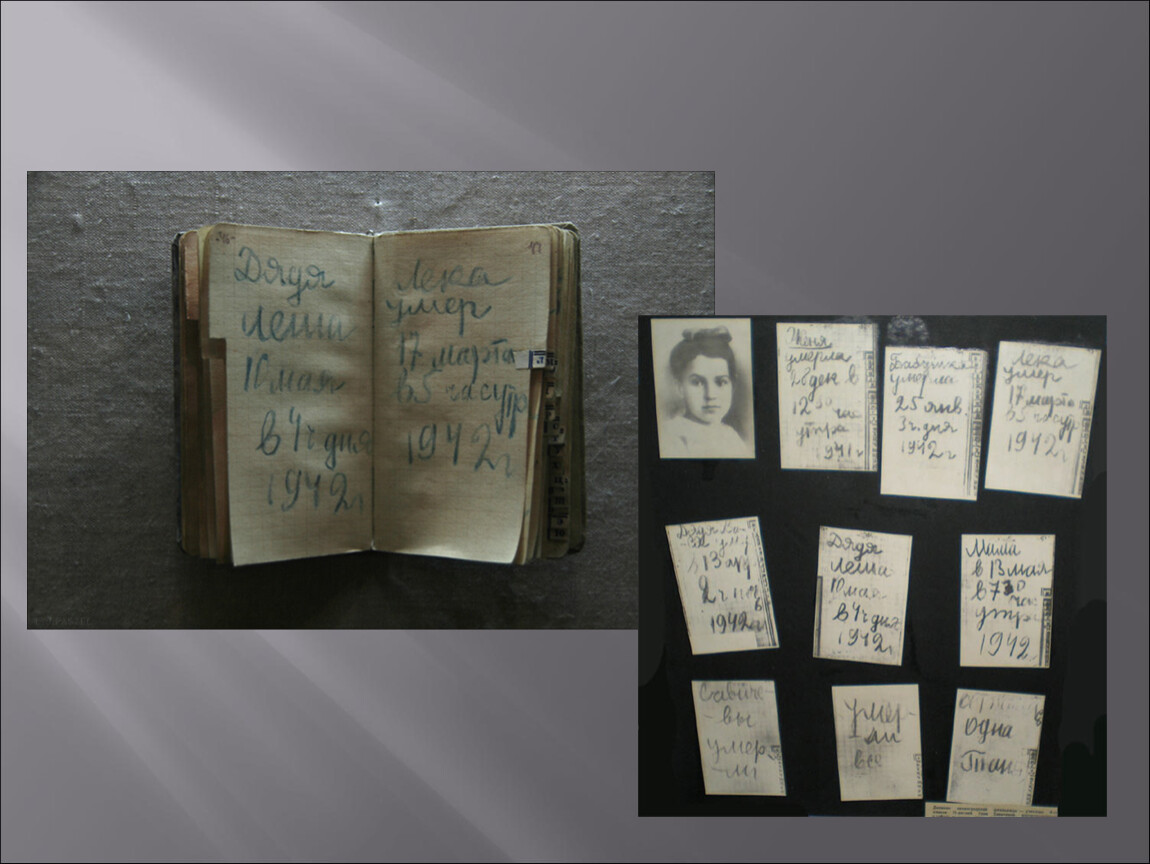 Дядя
Леша
10 мая
в 4ч дня
1942 г
17
Лека
умер
17 марта
в 5 часутр
1942 г
Женя
умерла
28 дек в
12 30 час
утра
1941 г
Бабушка
умерла
25 янв.
3 ч. дня
1942 г
Лека
умер
17 марта
в 5 часутр
1942 г
Дядя Ва-
ся умер
в 13 апр
2 ч ноч
1942 г
Дядя
Леша
10 мая
в 4ч дня
1942 г
Мама
в 13 мая
в 7 30 час
утра
1942 г
Савиче-
-вы
умер-
-ли
умер-
ли
все
одна
Таня